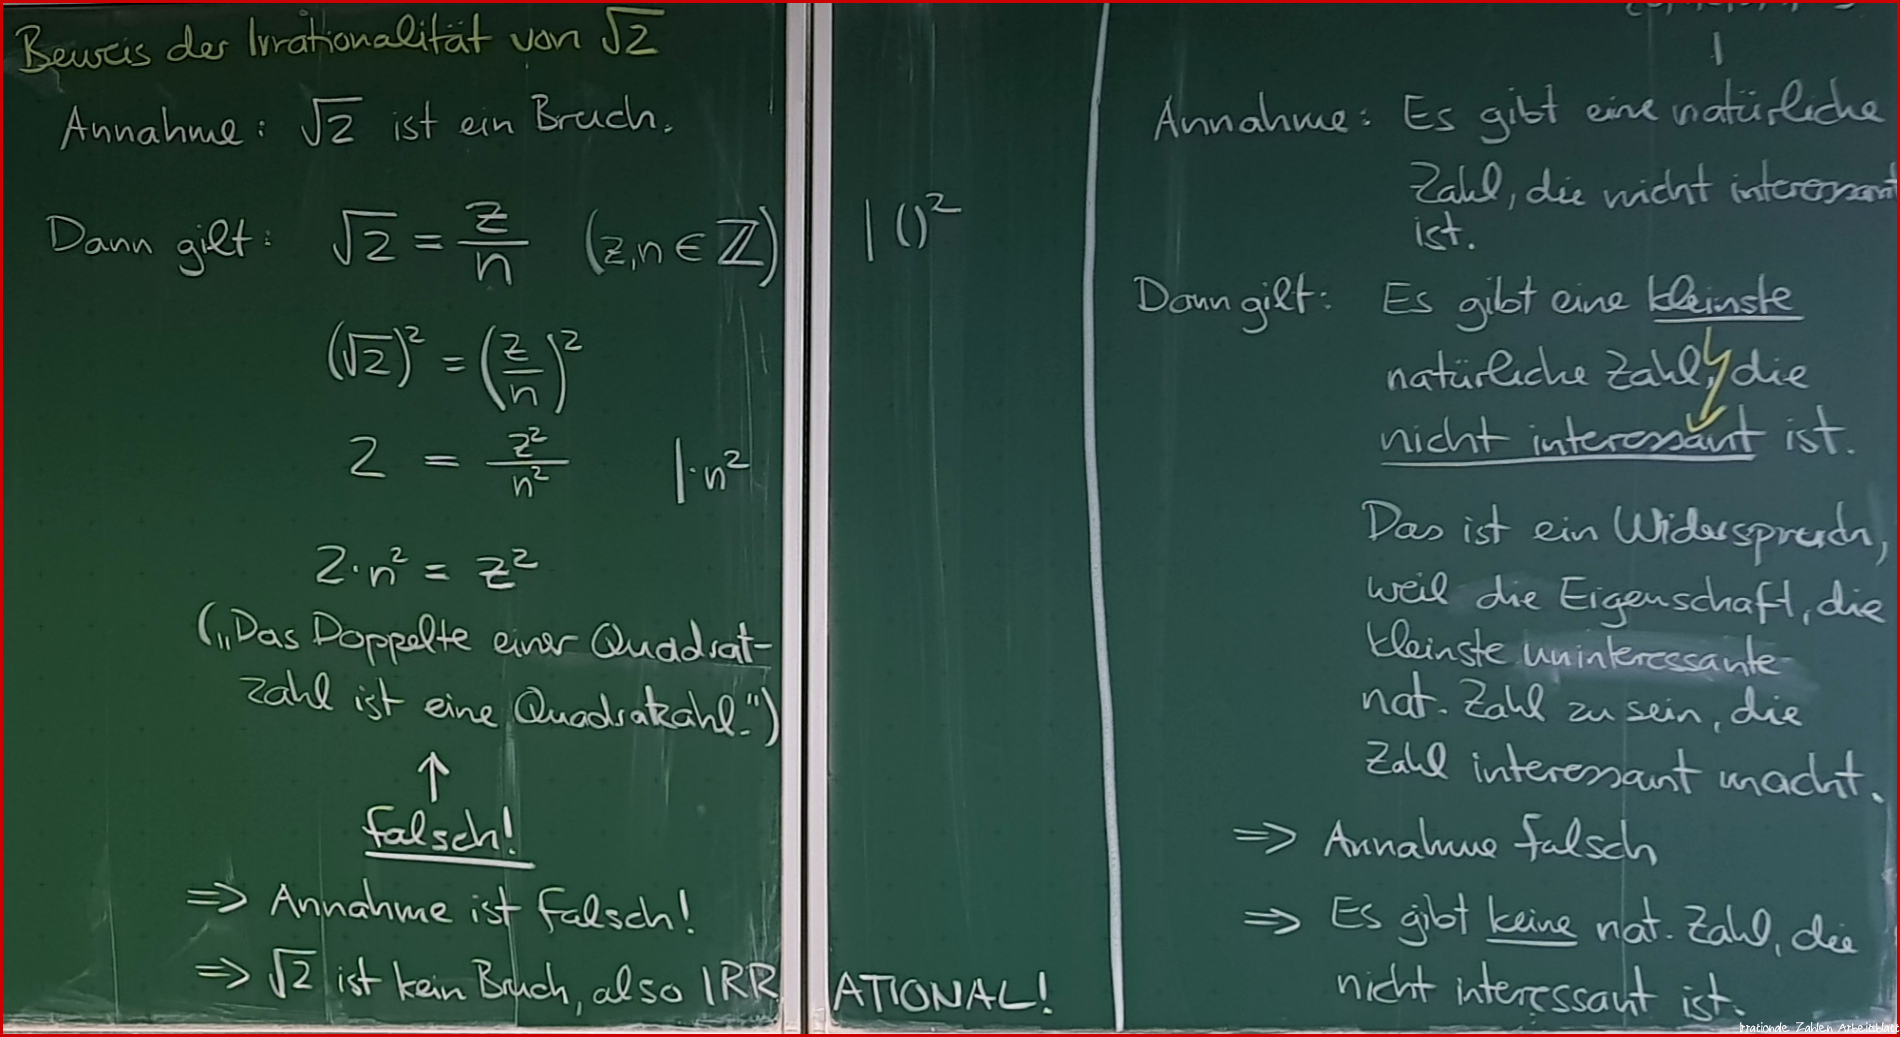 Beweis der Irrationalität von √2
Annahme: √2 ist ein Bruch.
Dann gilt: √2 = z/n (z,n ∈ ℤ) | ()²
(√2)² = (z/n)²
2 = z²/n² | · n²
2 · n² = z²
(„Das Doppelte einer Quadrat-
zahl ist eine Quadratzahl.")
↑
falsch!
=> Annahme ist falsch!
=> √2 ist kein Bruch, also IRRATIONAL!
Annahme: Es gibt eine natürliche
Zahl, die nicht interessant
ist.
Dann gilt: Es gibt eine kleinste
natürliche Zahl, die
nicht interessant ist.
Das ist ein Widerspruch,
weil die Eigenschaft, die
kleinste uninteressante
nat. Zahl zu sein, die
Zahl interessant macht.
=> Annahme falsch
=> Es gibt keine nat. Zahl, die
nicht interessant ist.
Zahlen Arbeitsblatt